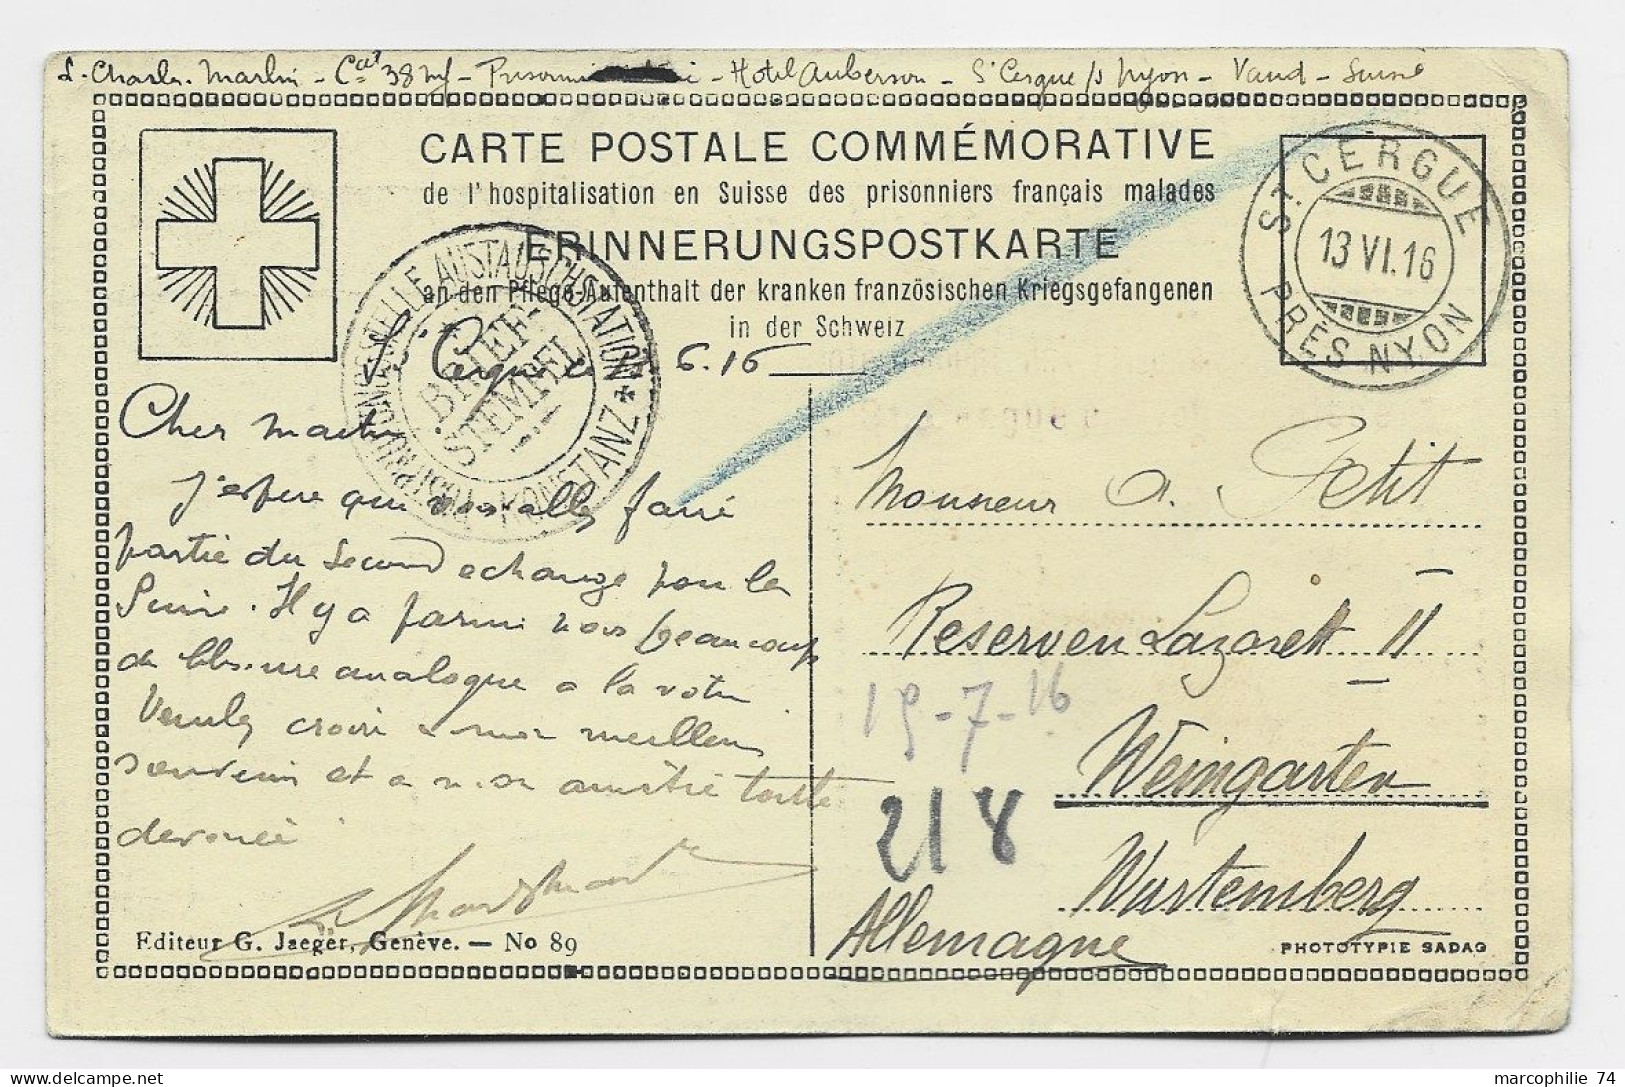 Charles Marlin - Cal 38 Inf - Hotel Auberson - St Cergue s/ Nyon - Vaud - Suisse
CARTE POSTALE COMMÉMORATIVE
de l'hospitalisation en Suisse des prisonniers français malades
ERINNERUNGSPOSTKARTE
an den Pflege-Aufenthalt der kranken französischen Kriegsgefangenen
in der Schweiz
ST. CERGUE
13 VI. 16
PRÈS NYON
AUSTAUSCHSTATION
KONSTANZ
BRIEF-
STEMPEL
St Cergue le 6.16
Cher
J'espère que vous allez faire
partie du second echange pour la
Suisse. Il y a parmi nous beaucoup
de blessure analogue a la votre
Veuillez croire a mon meilleur
souvenir et a mon amitié toute
devouée
Monsieur A. Petit
Reserven Lazarett II
19-7-16
Weingarten
218
Wurtemberg
Allemagne
Editeur G. Jaeger, Genève. — No 89
PHOTOTYPIE SADAG
marcophilie 74